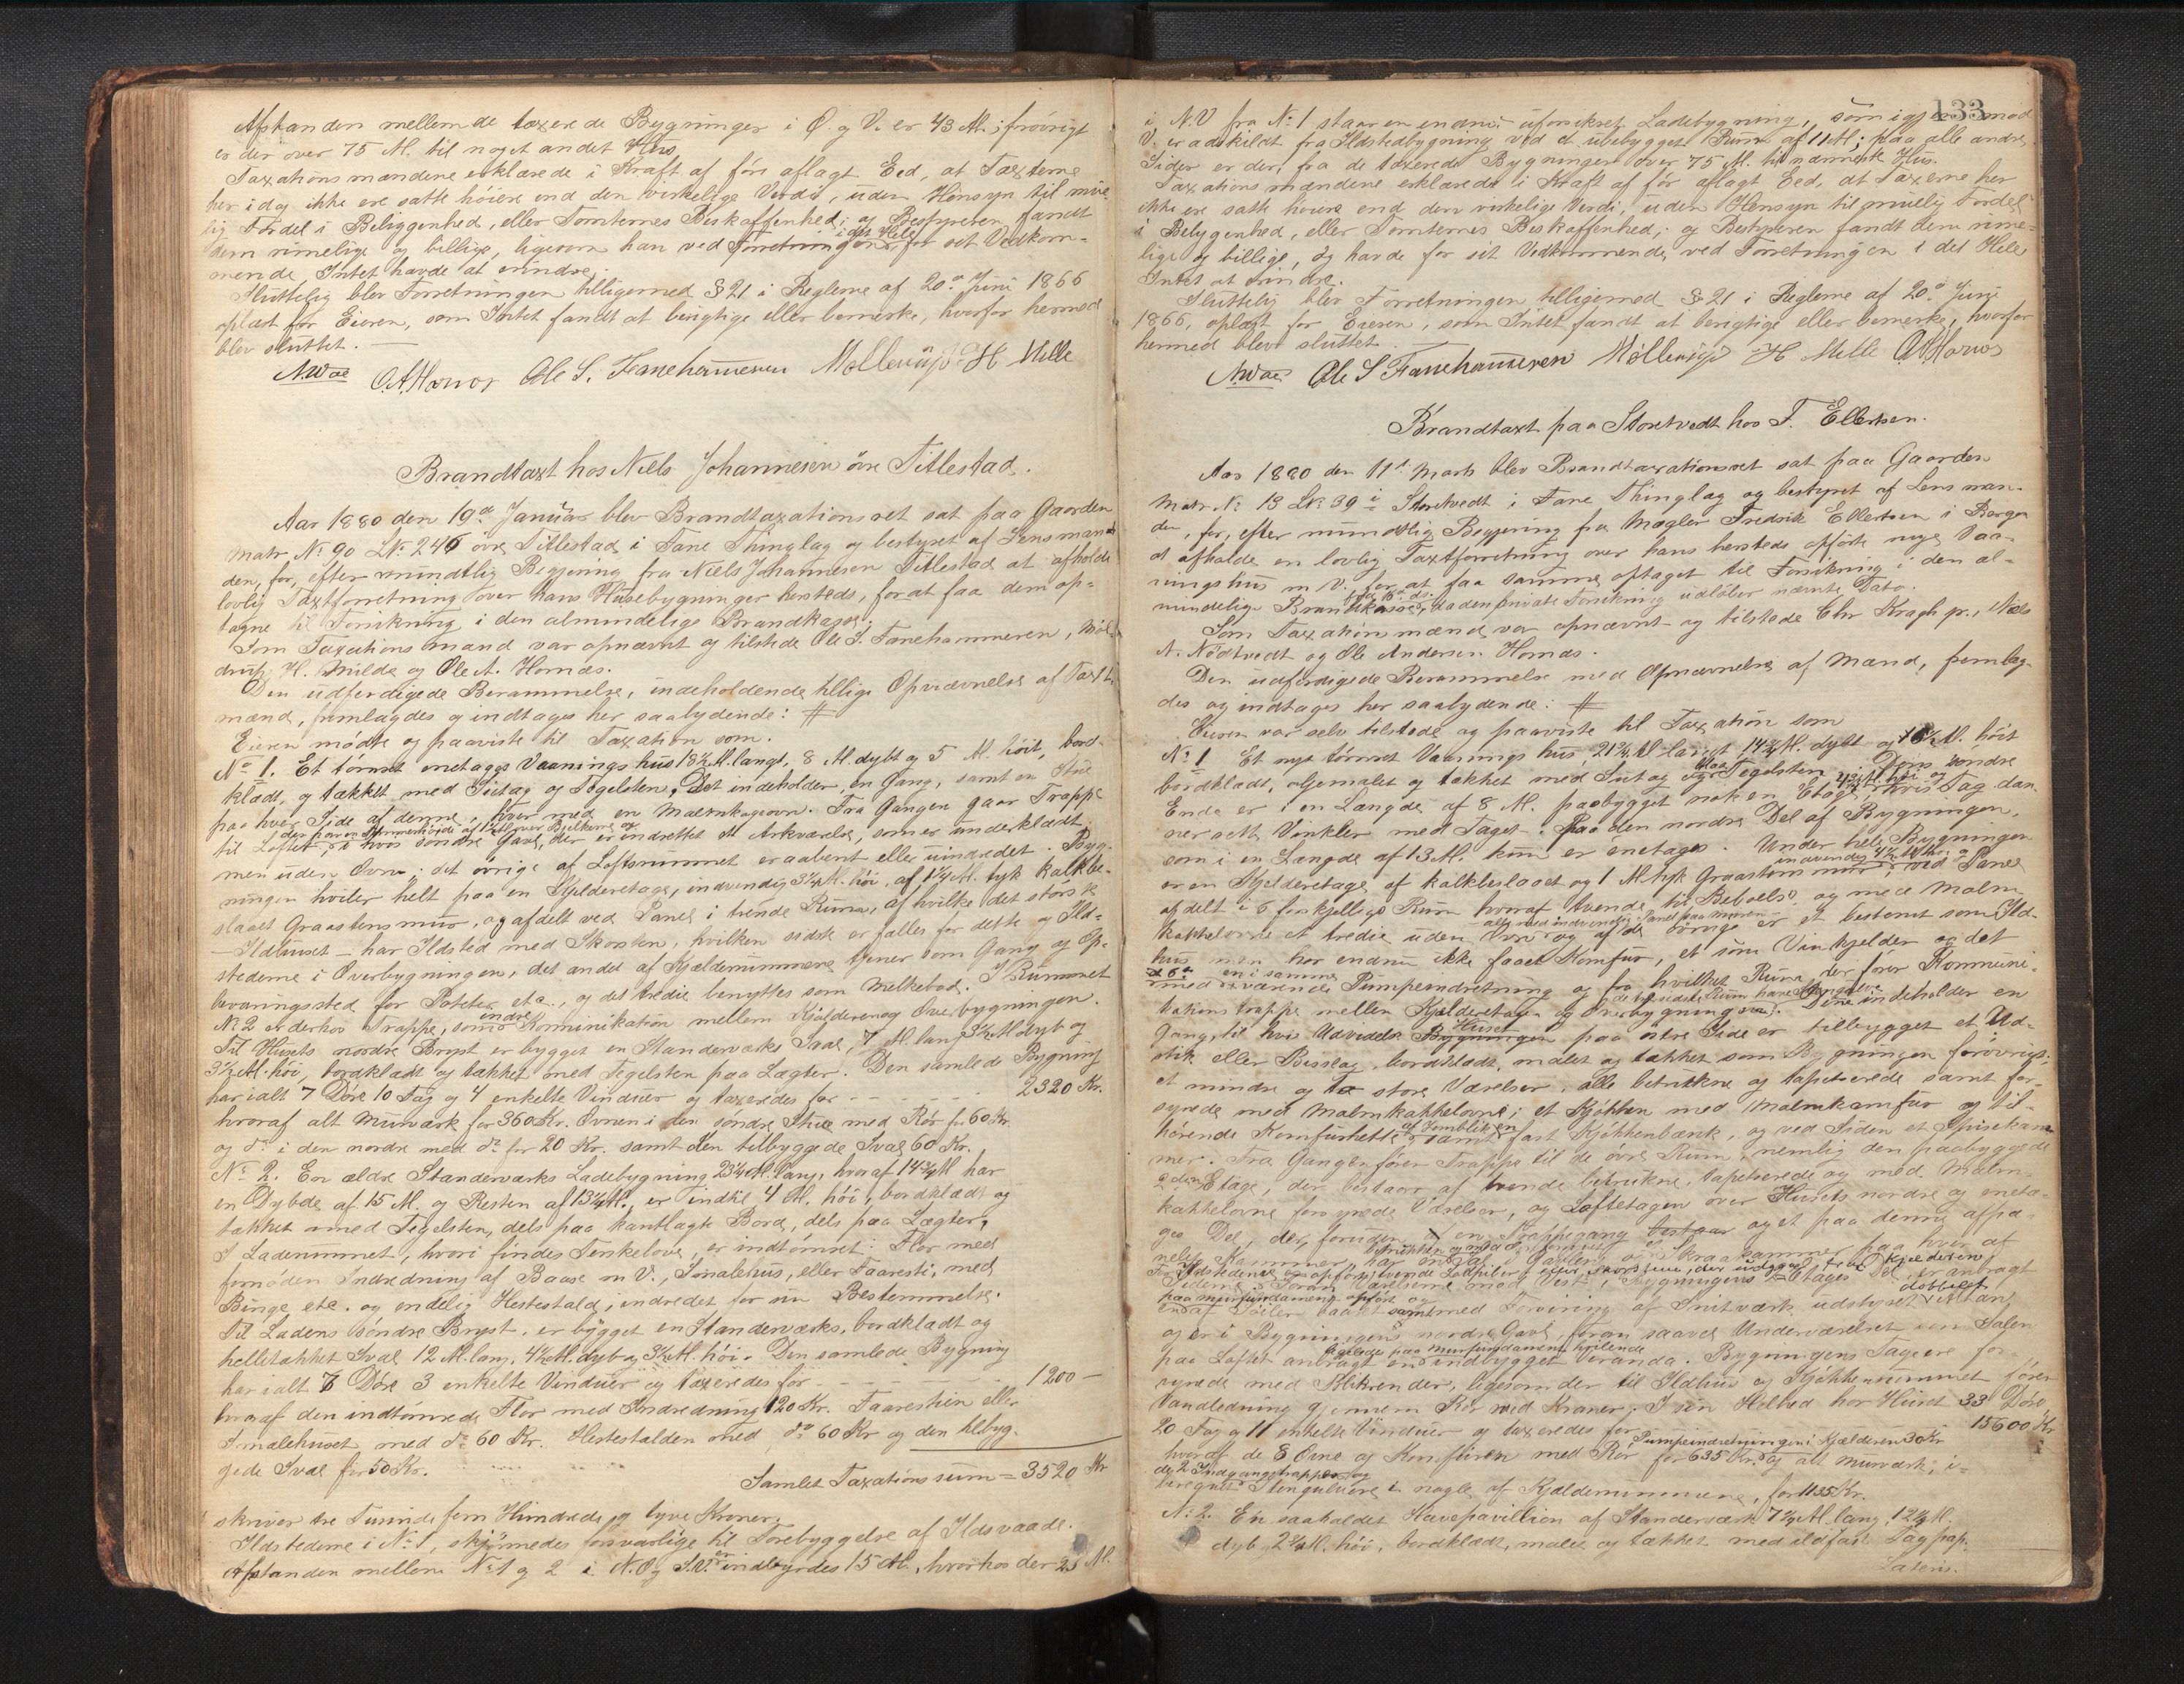 Afstanden mellem de taxerede Bygninger i Ø. og V. er 43 Al. iforövrigt
er der over 75 Al. til noget andet Hus
Taxationsmændene erklærede i Kraft af för aflagt Eed, at Taxterne
her idag ikke ere satte höiere end den virkelige Verdi, uden Hensyn til mue-
lig Fordel i Beliggenhed, eller Tomternes Beskaffenhed; og Bestyreren fandt
dem rimelige og billige, ligesom han ved Forretningen i det Hele for sit Vedkom-
mende Intet havde at erindre.
Sluttelig blev Forretningen tilligemed § 21 i Reglerne af 20de Juni 1866
oplæst for Eieren, som Intet fandt at berigtige eller bemerke, hvorfor hermed
blev sluttet. —
O A Hornes Ole S. Fanehammeren H Milde
Brandtaxt hos Niels Johannesen övre Titlestad.
Aar 1880 den 19de Januar blev Brandtaxationsret sat paa Gaarden
matr. No 90 LNo 246 övre Titlestad i Fane Thinglag og bestyret af Lensman-
den, for, efter mundtlig Begjering fra Niels Johannesen Titlestad at afholde
lovlig Taxtforretning over hans Husebygninger hersteds, for at faa dem op-
tagne til Forsikring i den almindelige Brandkasse.
Som Taxationsmænd var opnævnt og tilstede Ole S. Fanehammeren, Möl-
drup H. Milde og Ole A. Hornæs.
Den udferdigede Berammelse, indeholdende tillige Opnævnelse af Taxt-
mænd, fremlagdes og indtages her saalydende: #
Eieren mödte og paaviste til Taxation som.
No 1. Et tömret enetages Vaaningshus 18½ Al. langt, 8 Al. dybt og 5 Al. höit, bord-
klædt, og tækket med Sutag og Tegelsten. Det indeholder en Gang, samt en Stue
paa hver Side af denne, hver med en Malmkageovn. Fra Gangen gaar Trappe
til Loftet, i hvis söndre Gavl, der er indrettet et Arkværelse, som er underklædt
men uden Ovn; det övrige af Loftsrummet er aabent eller uindredet. Byg-
ningen hviler helt paa en Kjelderetage, indvendig 3¼ Al. höi, af 1¼ Al. tyk kalkbe-
slaaet Graastensmur, og afdelt ved Panel i trende Rum, af hvilke det störste
— Ildhuset — har Ildsted med Skorsten, hvilken sidste er fælles for dette og Ild-
stederne i Overbygningen, det andet af Kjælderrummene tjener som Gang og Op-
bevaringssted for Poteter etc., og det tredie benyttes som Melkebod. I Rummet
No 2 er derhos Trappe, som indre Kommunikation mellem Kjælderen og Overbygningen.
Til Husets nordre Bryst er bygget en Standerværks Sval, 7 Al. lang 3½ Al. dyb og
3½ Al. höi, bordklædt og tækket med Tegelsten paa Lægter. Den samlede Bygning
har ialt 7 Döre 10 Fag og 4 enkelte Vinduer og taxeredes for - - - - 2320 Kr.
hvoraf alt Murværk for 360 Kr. Ovnen i den söndre Stue med Rör for 60 Kr.
og do i den nordre med do for 20 Kr. samt den tilbyggede Sval 60 Kr.
No 2. En ældre Standerværks Ladebygning 23¼ Al. lang, hvoraf 14¾ Al har
en Dybde af 15 Al. og Resten af 13¼ Al., er indtil 4 Al. höi, bordklædt og
tækket med Tegelsten, dels paa kantlagte Bord, dels paa Lægter.
I Laderummet, hvori findes Tenkelove, er indtömret: Flor med
fornöden Indredning af Baase m. V., Smalehus, eller Faaresti, med
Binge etc. og endelig Hestestald, indredet for sin Bestemmelse.
Til Ladens söndre Bryst, er bygget en Standerværks, bordklædt og
helletækket Sval 12 Al. lang, 4½ Al. dyb og 3½ Al. höi. Den samlede Bygning
har ialt 7 Döre 3 enkelte Vinduer og taxeredes for - - - - 1200 —
hvoraf den indtömrede Flor med Indredning 120 Kr. Faarestien eller
Smalehuset med do 60 Kr. Hestestalden med do 60 Kr og den tilbyg-
gede Sval for 50 Kr.
Samlet Taxationssum = 3520 Kr
skriver tre Tusinde fem Hundrede og tyve Kroner.
Ildstederne i No 1, skjönnedes forsvarlige til Forebyggelse af Ildsvaade.
Afstanden mellem No 1 og 2 i N.O. og S.V. er indbyrdes 15 Al., hvorhos der 23 Al.
133
i N.V fra No 1 staar en endnu uforsikret Ladebygning, som igj mod
V. er adskildt fra Ildstedbygning ved et ubebygget Rum af 11 Al; paa alle andre
Sider er der, fra de taxerede Bygninger over 75 Al. til nærmeste Hus.
Taxationsmændene erklærede i Kraft af för aflagt Eed, at Taxterne her
ikke ere satte höiere end den virkelige Verdi, uden Hensyn til muelig Fordel
i Beliggenhed, eller Tomternes Beskaffenhed; og Bestyreren fandt dem rime-
lige og billige, og havde for sit Vedkommende ved Forretningen i det Hele
Intet at erindre.
Sluttelig blev Forretningen tilligemed § 21 i Reglerne af 20de Juni
1866, oplæst for Eieren, som Intet fandt at berigtige eller bemerke, hvorfor
hermed blev sluttet.
Ole S Fanehammeren H Milde O A Hornes
Brandtaxt paa Storetvedt hos F. Ellertsen.
Aar 1880 den 11te Marts blev Brandtaxationsret sat paa Gaarden
Matr No 13 LNo 39 i Storetvedt i Fane Thinglag og bestyret af Lensman-
den, for, efter mundtlig Begjering fra Mægler Fredrik Ellertsen i Bergen
at afholde en lovlig Taxtforretning over hans hersteds opförte nye Vaa-
ningshus m. V. for at faa samme optaget til Forsikring i den al-
mindelige Brandkasse, da den private Forsikring udlöber nævnte Dato.
Som Taxationsmænd var opnævnt og tilstede Chr Kragh p., Niels
N. Nödtvedt og Ole Andersen Hornæs.
Den udferdigede Berammelse med Opnævnelse af Mænd, fremlag-
des og indtages her saalydende: #
Eieren var selv tilstede og paaviste til Taxation som
No 1 Et nyt tömret Vaaningshus, 21¾ Al langt 14¾ Al. dybt og Al. höit
bordklædt, oljemalet og tækket med Sutag og Tegelsten. Dens söndre
Ende er i en Længde af 8 Al. paabygget nok en Etage, hvis Tag dan-
ner rette Vinkler med Taget paa den nordre Del af Bygningen,
som i en Længde af 13 Al. kun er enetages. Under hele Bygningen
er en Kjelderetage af kalkbeslaaet og 1 Al tyk Graastensmur, ved Panel
afdelt i 6 forskjellige Rum hvoraf tvende til Beboelse og med Malm-
kakkelovne et tredie uden Ovn og af de övrige er et bestemt som Ild-
hus men har endnu ikke faaet Komfur, et som Vinkjelder og det
med værende Pumpeindretning og fra hvilket Rum der förer Kommuni-
kationstrappe mellem Kjelderetagen og Overbygningen. Denne indeholder en
Gang, til hvis Udvidelse Huset paa östre Side er tilbygget et Ud-
stik eller Bislag, bordklædt, malet og tækket som Bygningen forövrigt;
et mindre og to store Værelser, alle betrukne og tapetserede samt for-
synede med Malmkakkelovne; et Kjökken med Malmkomfur og til-
hörende Komfurhette af Jernblik samt fast Kjökkenbænk, og ved Siden et Spisekam-
mer. Fra Gangen förer Trappe til de övre Rum, nemlig den paabyggede
2den Etage, der bestaar af tvende betrukne, tapetserede og med Malm-
kakkelovne forsynede Værelser, og Loftetagen over Husets nordre og eneta-
ges Del, der, foruden en Trappegang og et paa denne afpa-
nelet Kammer
og er i Bygningens nordre Gavl, foran saavel Underværelset som Salen
paa Loftet anbragt en indbygget Veranda. Bygningens Tage ere for-
synede med Blikrender, ligesom der til Ildhus og Kjökkenrummet förer
Vandledning gjennem Rör med Kraner. I sin Helhed har Huset 33 Döre,
20 Fag og 11 enkelte Vinduer og taxeredes for 15600 Kr
hvoraf de 8 Ovne og Komfuren med Rör for 635 Kr. Pumpeindretningen i Kjælderen 30 Kr og alt Murværk, i-
beregnet Stengulvene i nogle af Kjælderrummene, for 1155 Kr.
No 2. En saakaldet Havepavillion af Standerværk 7½ Al. lang, Al.
dyb 2¾ Al. höi, bordklædt, malet og tækket med ildfast Tagpap.
Lateris.